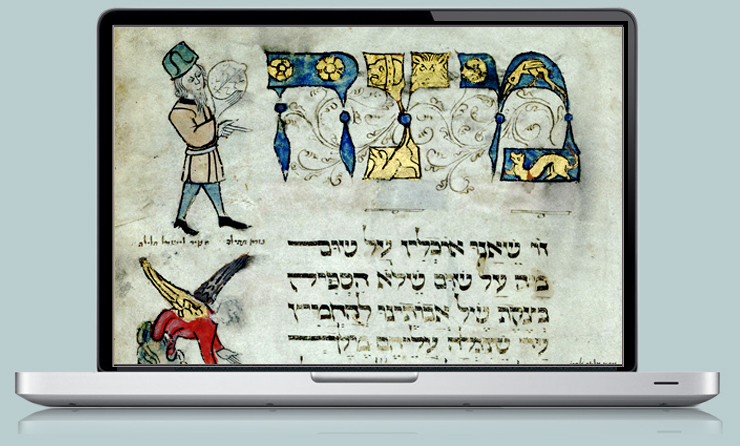 מצה
זו שאנו אוכלין על שום
מה על שום שלא הספיק
בצקת של אבותינו להחמיץ
עד שנגלה עליהם